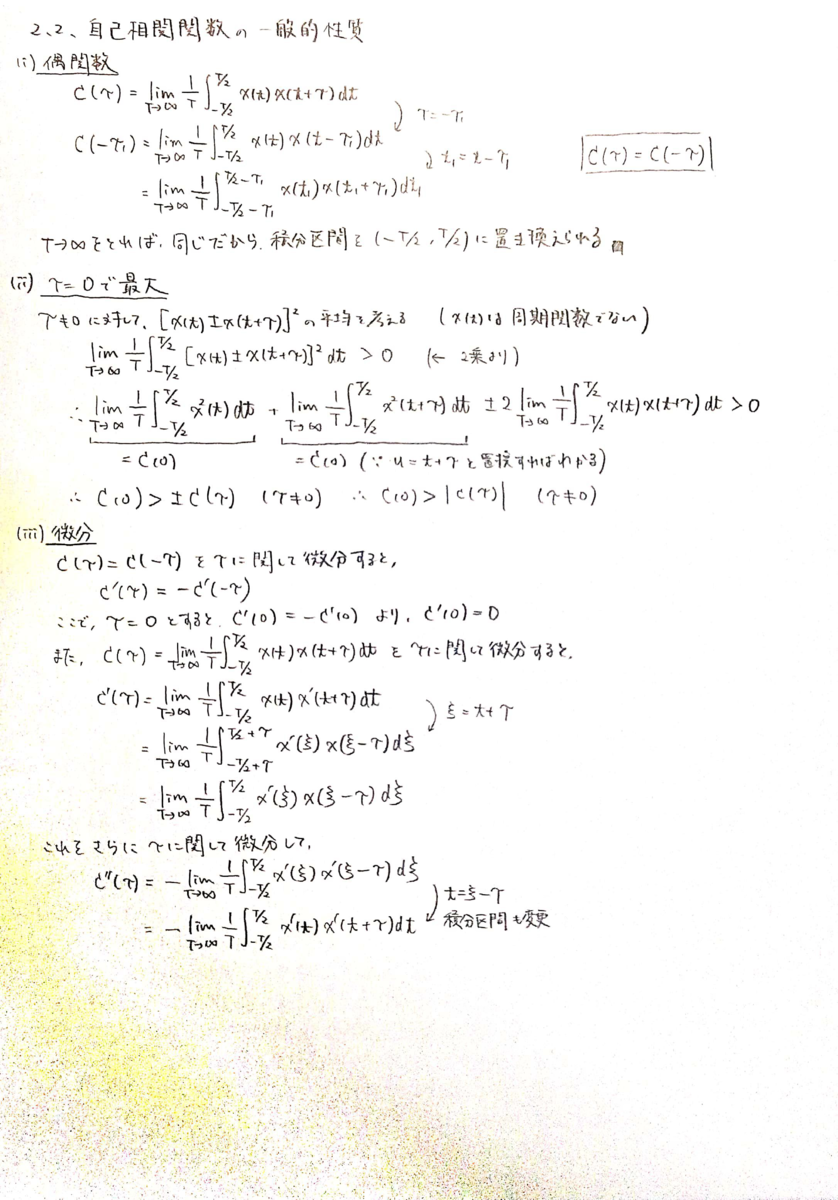 2.2、自己相関関数の一般的性質
(i) 偶関数
C(τ) = lim_{T→∞} 1/T ∫_{-T/2}^{T/2} x(t) x(t+τ) dt
τ = -τ₁
C(-τ₁) = lim_{T→∞} 1/T ∫_{-T/2}^{T/2} x(t) x(t-τ₁) dt
t₁ = t-τ₁
C(τ) = C(-τ)
= lim_{T→∞} 1/T ∫_{-T/2-τ₁}^{T/2-τ₁} x(t₁) x(t₁+τ₁) dt₁
T→∞をとれば、同じだから、積分区間を(-T/2, T/2)に置き換えられる
(ii) τ=0で最大
τ≠0に対して、[x(t)±x(t+τ)]²の平均を考える (x(t)は周期関数でない)
lim_{T→∞} 1/T ∫_{-T/2}^{T/2} [x(t)±x(t+τ)]² dt > 0 (← 2乗より)
∴ lim_{T→∞} 1/T ∫_{-T/2}^{T/2} x²(t) dt + lim_{T→∞} 1/T ∫_{-T/2}^{T/2} x²(t+τ) dt ± 2 lim_{T→∞} 1/T ∫_{-T/2}^{T/2} x(t) x(t+τ) dt > 0
= C(0) = C(0) (∵ u = t+τ と置換すればわかる)
∴ C(0) > ±C(τ) (τ≠0) ∴ C(0) > |C(τ)| (τ≠0)
(iii) 微分
C(τ) = C(-τ) をτに関して微分すると,
C'(τ) = -C'(-τ)
ここで, τ=0とすると, C'(0) = -C'(0) より, C'(0)=0
また, C(τ) = lim_{T→∞} 1/T ∫_{-T/2}^{T/2} x(t) x(t+τ) dt をτに関して微分すると,
C'(τ) = lim_{T→∞} 1/T ∫_{-T/2}^{T/2} x(t) x'(t+τ) dt
ξ = t+τ
= lim_{T→∞} 1/T ∫_{-T/2+τ}^{T/2+τ} x'(ξ) x(ξ-τ) dξ
= lim_{T→∞} 1/T ∫_{-T/2}^{T/2} x'(ξ) x(ξ-τ) dξ
これをさらにτに関して微分して,
C''(τ) = - lim_{T→∞} 1/T ∫_{-T/2}^{T/2} x'(ξ) x'(ξ-τ) dξ
t=ξ-τ
積分区間も変更
= - lim_{T→∞} 1/T ∫_{-T/2}^{T/2} x'(t) x'(t+τ) dt